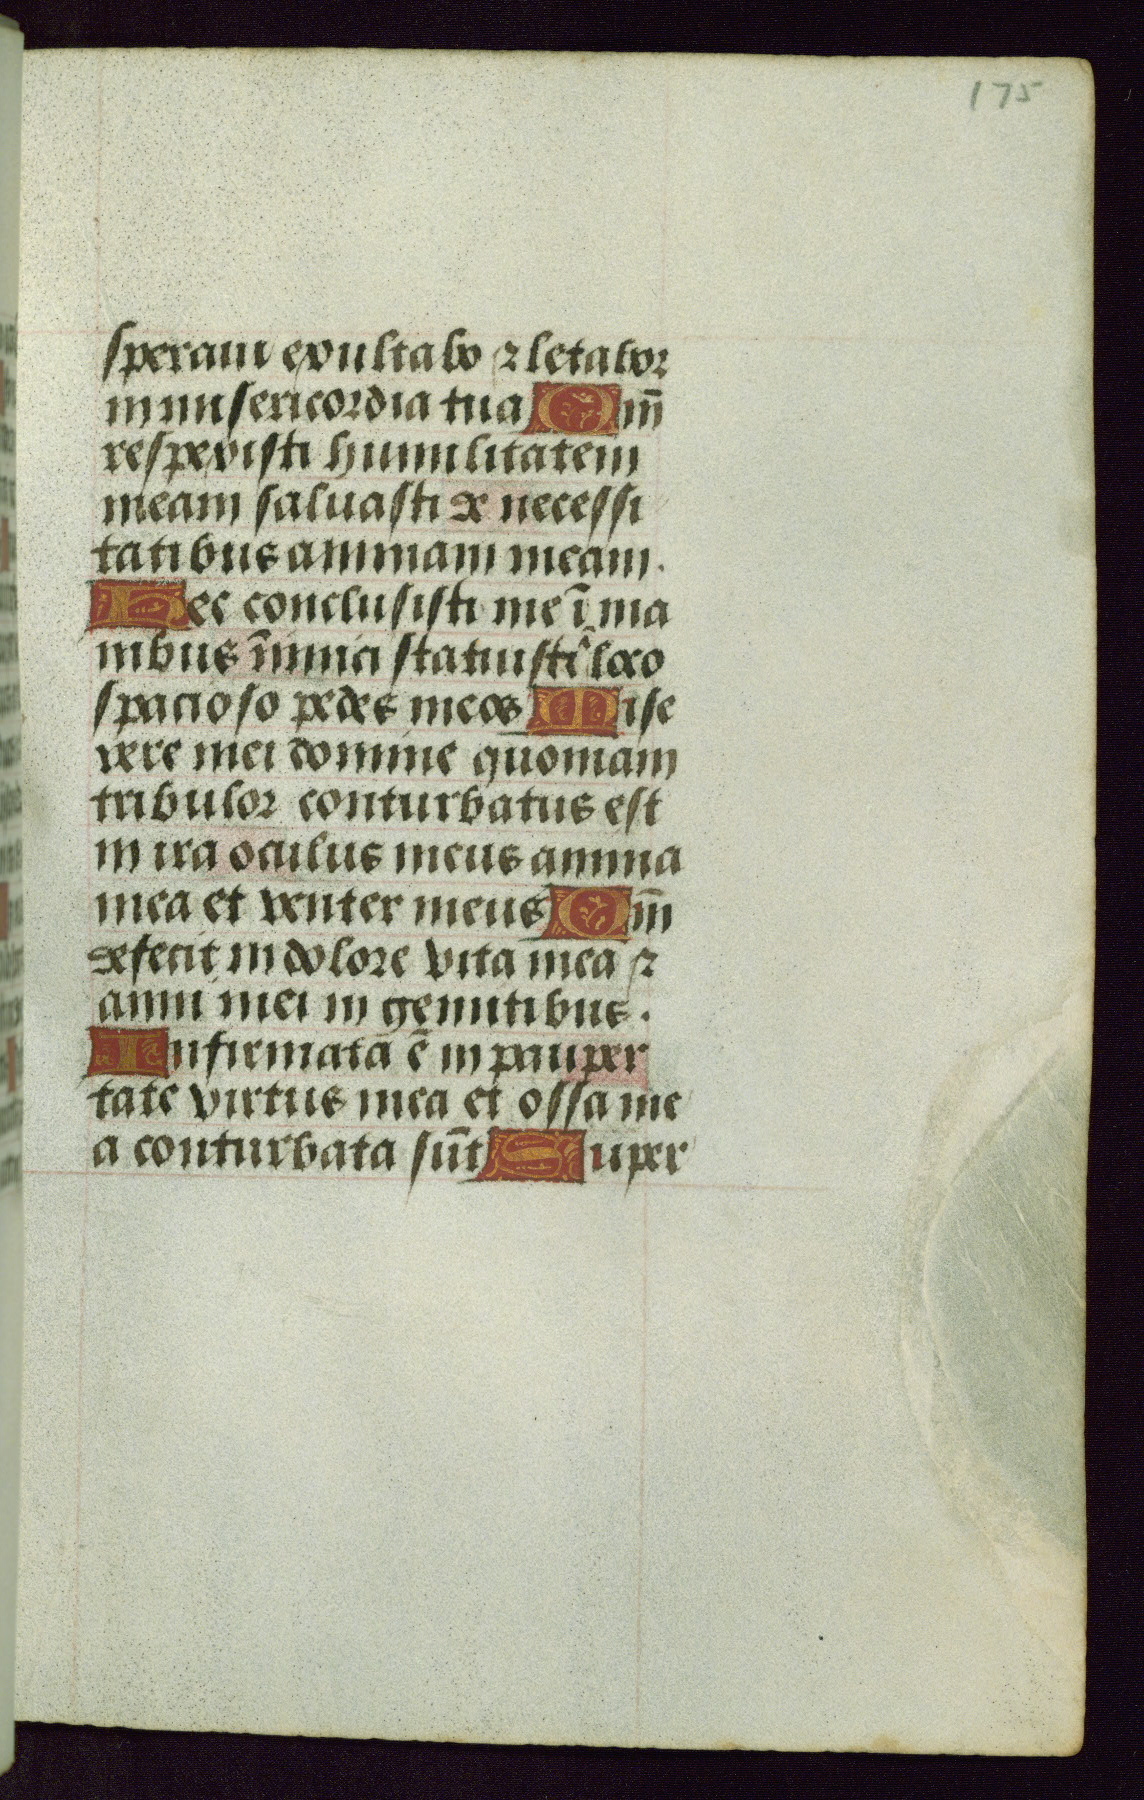 175
speraui exultabo ⁊ letabor
in misericordia tua Qm̄
respexisti humilitatem
meam saluasti de necessi
tatibus animam meam.
Nec conclusisti me ī ma
nibus īnimici statuisti ī loco
spacioso pedes meos Mise
rere mei domine quoniam
tribulor conturbatus est
in ira oculus meus anima
mea et venter meus Qm̄
defecit in dolore vita mea ⁊
anni mei in gemitibus.
Infirmata ē in pauper
tate virtus mea et ossa me
a conturbata sūt Super